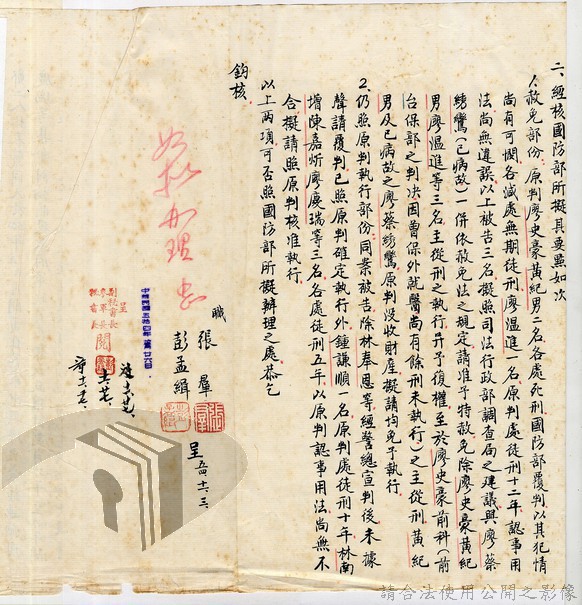 二、經核國防部所擬具要點如次
1.赦免部份：原判廖史豪黃紀男二名各處死刑國防部覆判以其犯情
尚有可憫各減處無期徒刑廖溫進一名原判處徒刑十二年認事用
法尚無違誤以上被告三名擬照司法行政部調查局之建議與廖蔡
綉鸞(已病故)一併依赦免法之規定請准予特赦免除廖史豪黃紀
男廖溫進等三名主從刑之執行并予復權至於廖史豪前科(前
台保部之判決因曾保外就醫尚有餘刑未執行)之主從刑黃紀
男及已病故之廖蔡綉鸞原判沒收財產擬請均免予執行
2.仍照原判執行部份：同案被告除林奉恩等經警總宣判後未據
聲請覆判已照原判確定執行外鍾謙順一名原判處徒刑十年林南
增陳嘉炘廖慶瑞等三名各處徒刑五年以原判認事用法尚無不
合擬請照原判核准執行
以上兩項可否照國防部所擬辦理之處恭乞
鈞核
如擬辦理
職 張羣
彭孟緝
呈 五四、十二、三、
呈
閱
請合法使用公開之影像